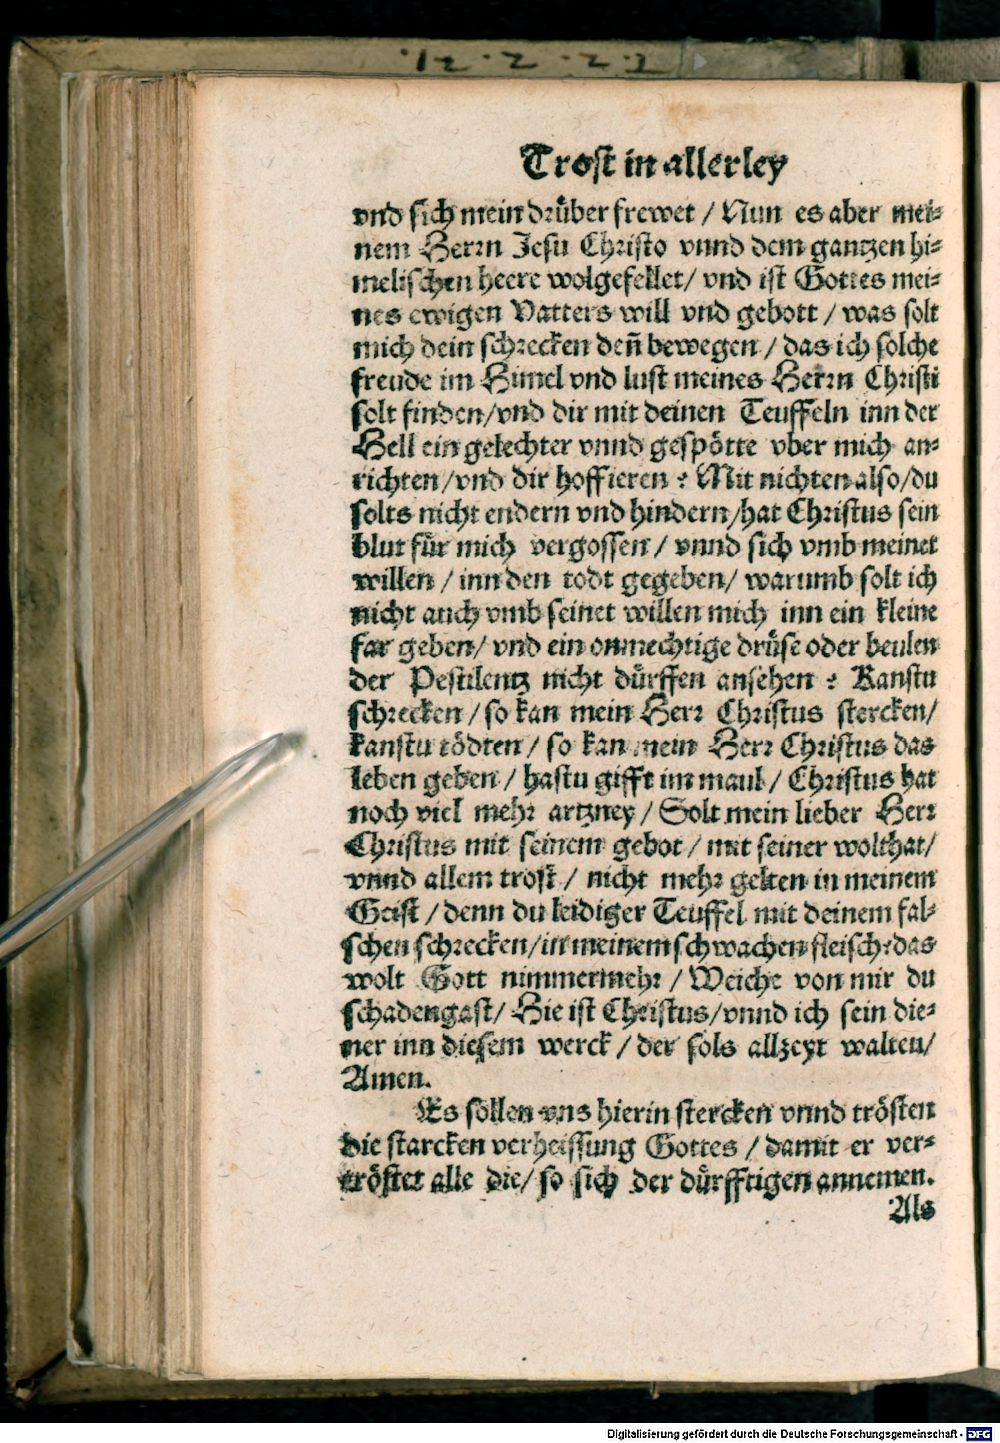 12.2.22
Trost in allerley
vnd sich mein drüber frewet / Nun es aber mei⸗
nem Herrn Jesu Christo vnnd dem gantzen hi⸗
melischen heere wolgefellet / vnd ist Gottes mei⸗
nes ewigen Vatters will vnd gebott / was solt
mich dein schrecken deñ bewegen / das ich solche
freude im Himel vnd lust meines Herrn Christi
solt finden / vnd dir mit deinen Teuffeln inn der
Hell ein gelechter vnnd gespötte vber mich an⸗
richten / vnd dir hoffieren ? Mit nichten also / du
solts nicht endern vnd hindern / hat Christus sein
blut für mich vergossen / vnnd sich vmb meinet
willen / inn den todt gegeben / warumb solt ich
nicht auch vmb seinet willen mich inn ein kleine
far geben / vnd ein onmechtige drüse oder beulen
der Pestilentz nicht dürffen ansehen ? Kanstu
schrecken / so kan mein Herr Christus stercken /
kanstu tödten / so kan mein Herr Christus das
leben geben / hastu gifft im maul / Christus hat
noch viel mehr artzney / Solt mein lieber Herr
Christus mit seinem gebot / mit seiner wolthat /
vnnd allem trost / nicht mehr gelten in meinem
Geist / denn du leidiger Teuffel mit deinem fal⸗
schen schrecken / in meinem schwachen fleisch ? das
wolt Gott nimmermehr / Weiche von mir du
schadengast / Hie ist Christus / vnnd ich sein die⸗
ner inn diesem werck / der sols allzeyt walten /
Amen.
Es sollen vns hierin stercken vnnd trösten
die starcken verheissung Gottes / damit er ver⸗
tröstet alle die / so sich der dürfftigen annemen.
Als
Digitalisierung gefördert durch die Deutsche Forschungsgemeinschaft - DFG